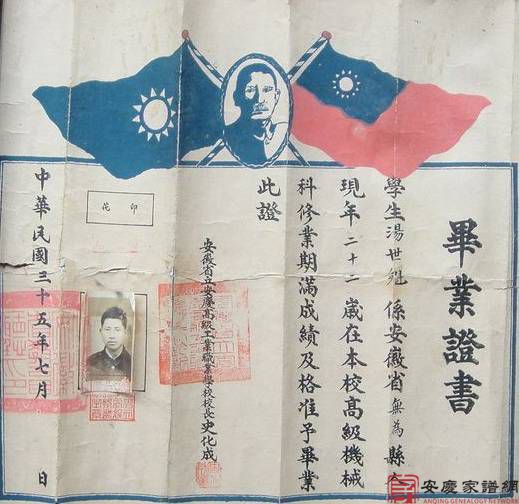 畢業證書
學生湯世 係安徽省無為縣人
現年二十二歲在本校高級機械
科修業期滿成績及格准予畢業
此證
安徽省立安慶高級工業職業學校校長史化成
印花
中華民國三十五年七月 日
安慶家譜網
ANQING GENEALOGY NETWORK